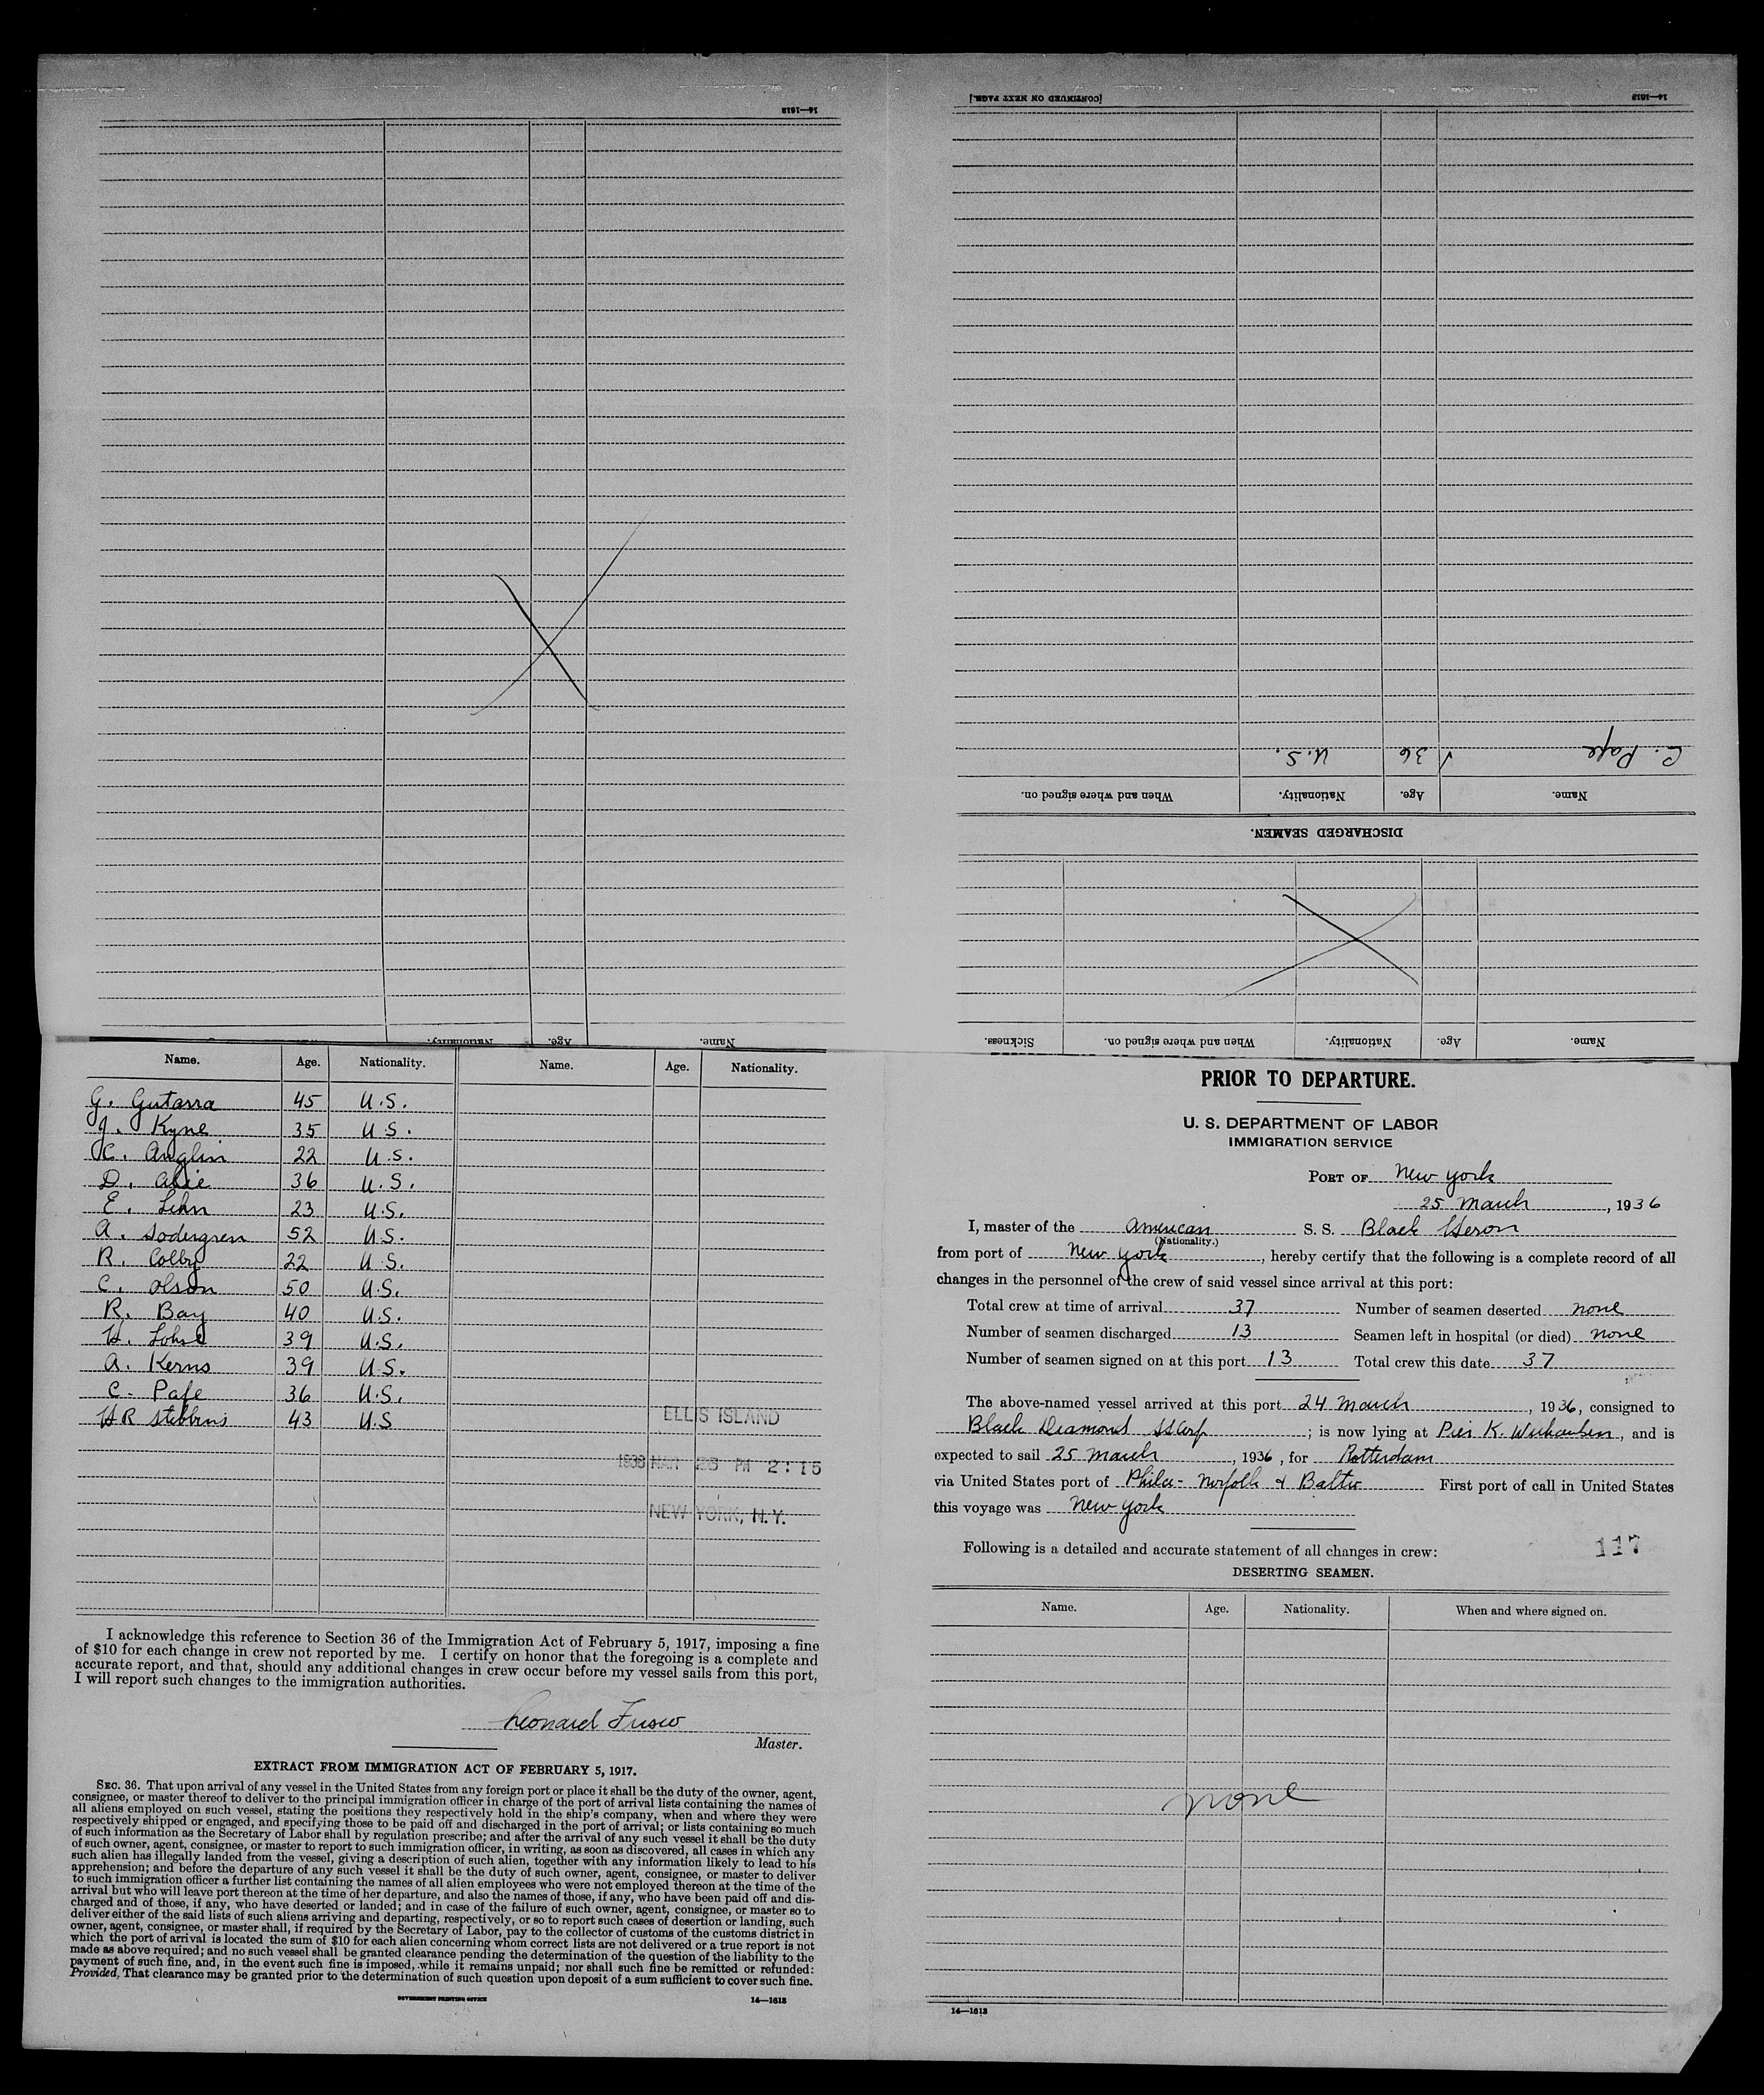 14—1613
[CONTINUED ON NEXT PAGE.]
14—1613
C. Pape 36 U.S.
Name. Age. Nationality. When and where signed on.
DISCHARGED SEAMEN.
Name. Age. Nationality. When and where signed on. Sickness.
Name. Age. Nationality.
Name. Age. Nationality. Name. Age. Nationality.
G. Gutarra 45 U.S.
J. Kyne 35 U.S.
C. Anglin 22 U.S.
D. 36 U.S.
E. Lehn 23 U.S.
A. Sodergren 52 U.S.
R. Colby 22 U.S.
C. Olson 50 U.S.
R. Bay 40 U.S.
H. Lohse 39 U.S.
A. Kerns 39 U.S.
C. Pape 36 U.S.
H R Stebbins 43 U.S
ELLIS ISLAND
PM 2:15
NEW YORK, N.Y.
I acknowledge this reference to Section 36 of the Immigration Act of February 5, 1917, imposing a fine
of $10 for each change in crew not reported by me. I certify on honor that the foregoing is a complete and
accurate report, and that, should any additional changes in crew occur before my vessel sails from this port,
I will report such changes to the immigration authorities.
Leonard
Master.
EXTRACT FROM IMMIGRATION ACT OF FEBRUARY 5, 1917.
SEC. 36. That upon arrival of any vessel in the United States from any foreign port or place it shall be the duty of the owner, agent,
consignee, or master thereof to deliver to the principal immigration officer in charge of the port of arrival lists containing the names of
all aliens employed on such vessel, stating the positions they respectively hold in the ship's company, when and where they were
respectively shipped or engaged, and specifying those to be paid off and discharged in the port of arrival; or lists containing so much
of such information as the Secretary of Labor shall by regulation prescribe; and after the arrival of any such vessel it shall be the duty
of such owner, agent, consignee, or master to report to such immigration officer, in writing, as soon as discovered, all cases in which any
such alien has illegally landed from the vessel, giving a description of such alien, together with any information likely to lead to his
apprehension; and before the departure of any such vessel it shall be the duty of such owner, agent, consignee, or master to deliver
to such immigration officer a further list containing the names of all alien employees who were not employed thereon at the time of the
arrival but who will leave port thereon at the time of her departure, and also the names of those, if any, who have been paid off and dis-
charged and of those, if any, who have deserted or landed; and in case of the failure of such owner, agent, consignee, or master so to
deliver either of the said lists of such aliens arriving and departing, respectively, or so to report such cases of desertion or landing, such
owner, agent, consignee, or master shall, if required by the Secretary of Labor, pay to the collector of customs of the customs district in
which the port of arrival is located the sum of $10 for each alien concerning whom correct lists are not delivered or a true report is not
made as above required; and no such vessel shall be granted clearance pending the determination of the question of the liability to the
payment of such fine, and, in the event such fine is imposed, while it remains unpaid; nor shall such fine be remitted or refunded:
Provided, That clearance may be granted prior to the determination of such question upon deposit of a sum sufficient to cover such fine.
GOVERNMENT PRINTING OFFICE 14—1613
PRIOR TO DEPARTURE.
U. S. DEPARTMENT OF LABOR
IMMIGRATION SERVICE
PORT OF New York
25 March, 1936
I, master of the American S. S. Black Heron
(Nationality.)
from port of New York, hereby certify that the following is a complete record of all
changes in the personnel of the crew of said vessel since arrival at this port:
Total crew at time of arrival 37 Number of seamen deserted none
Number of seamen discharged 13 Seamen left in hospital (or died) none
Number of seamen signed on at this port 13 Total crew this date 37
The above-named vessel arrived at this port 24 March, 1936, consigned to
Black Diamond SS Corp; is now lying at Pier K. Weehawken, and is
expected to sail 25 March, 1936, for Rotterdam
via United States port of Phila- Norfolk & Balto First port of call in United States
this voyage was New York
Following is a detailed and accurate statement of all changes in crew: 117
DESERTING SEAMEN.
Name. Age. Nationality. When and where signed on.
none
14—1613